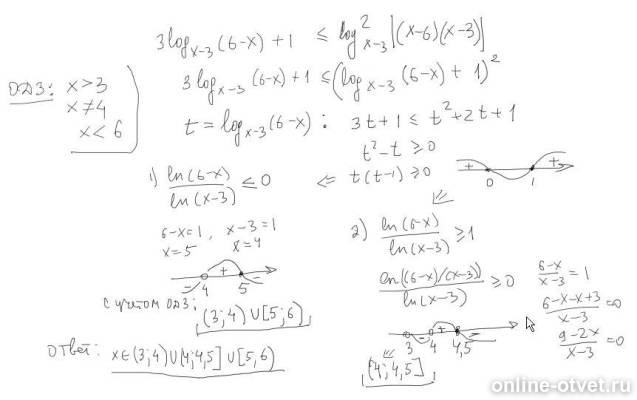 3log_{x-3}(6-x)+1 ≤ log²_{x-3}|(x-6)(x-3)|
ОДЗ: x>3
x≠4
x<6
3log_{x-3}(6-x)+1 ≤ (log_{x-3}(6-x)+1)²
t = log_{x-3}(6-x): 3t+1 ≤ t²+2t+1
t²-t ≥ 0
1) ln(6-x)/ln(x-3) ≤ 0 ⇐ t(t-1) ≥ 0
+ 0 1 +
6-x=1, x-3=1
x=5 x=4
- 4 + 5 -
с учётом ОДЗ:
(3;4)∪[5;6)
2) ln(6-x)/ln(x-3) ≥ 1
ln((6-x)/(x-3))/ln(x-3) ≥ 0
(6-x)/(x-3) = 1
(6-x-x+3)/(x-3) = 0
(9-2x)/(x-3) = 0
3 - 4 + 4,5 -
(4;4,5]
Ответ: x∈(3;4)∪(4;4,5]∪[5,6)
online-otvet.ru